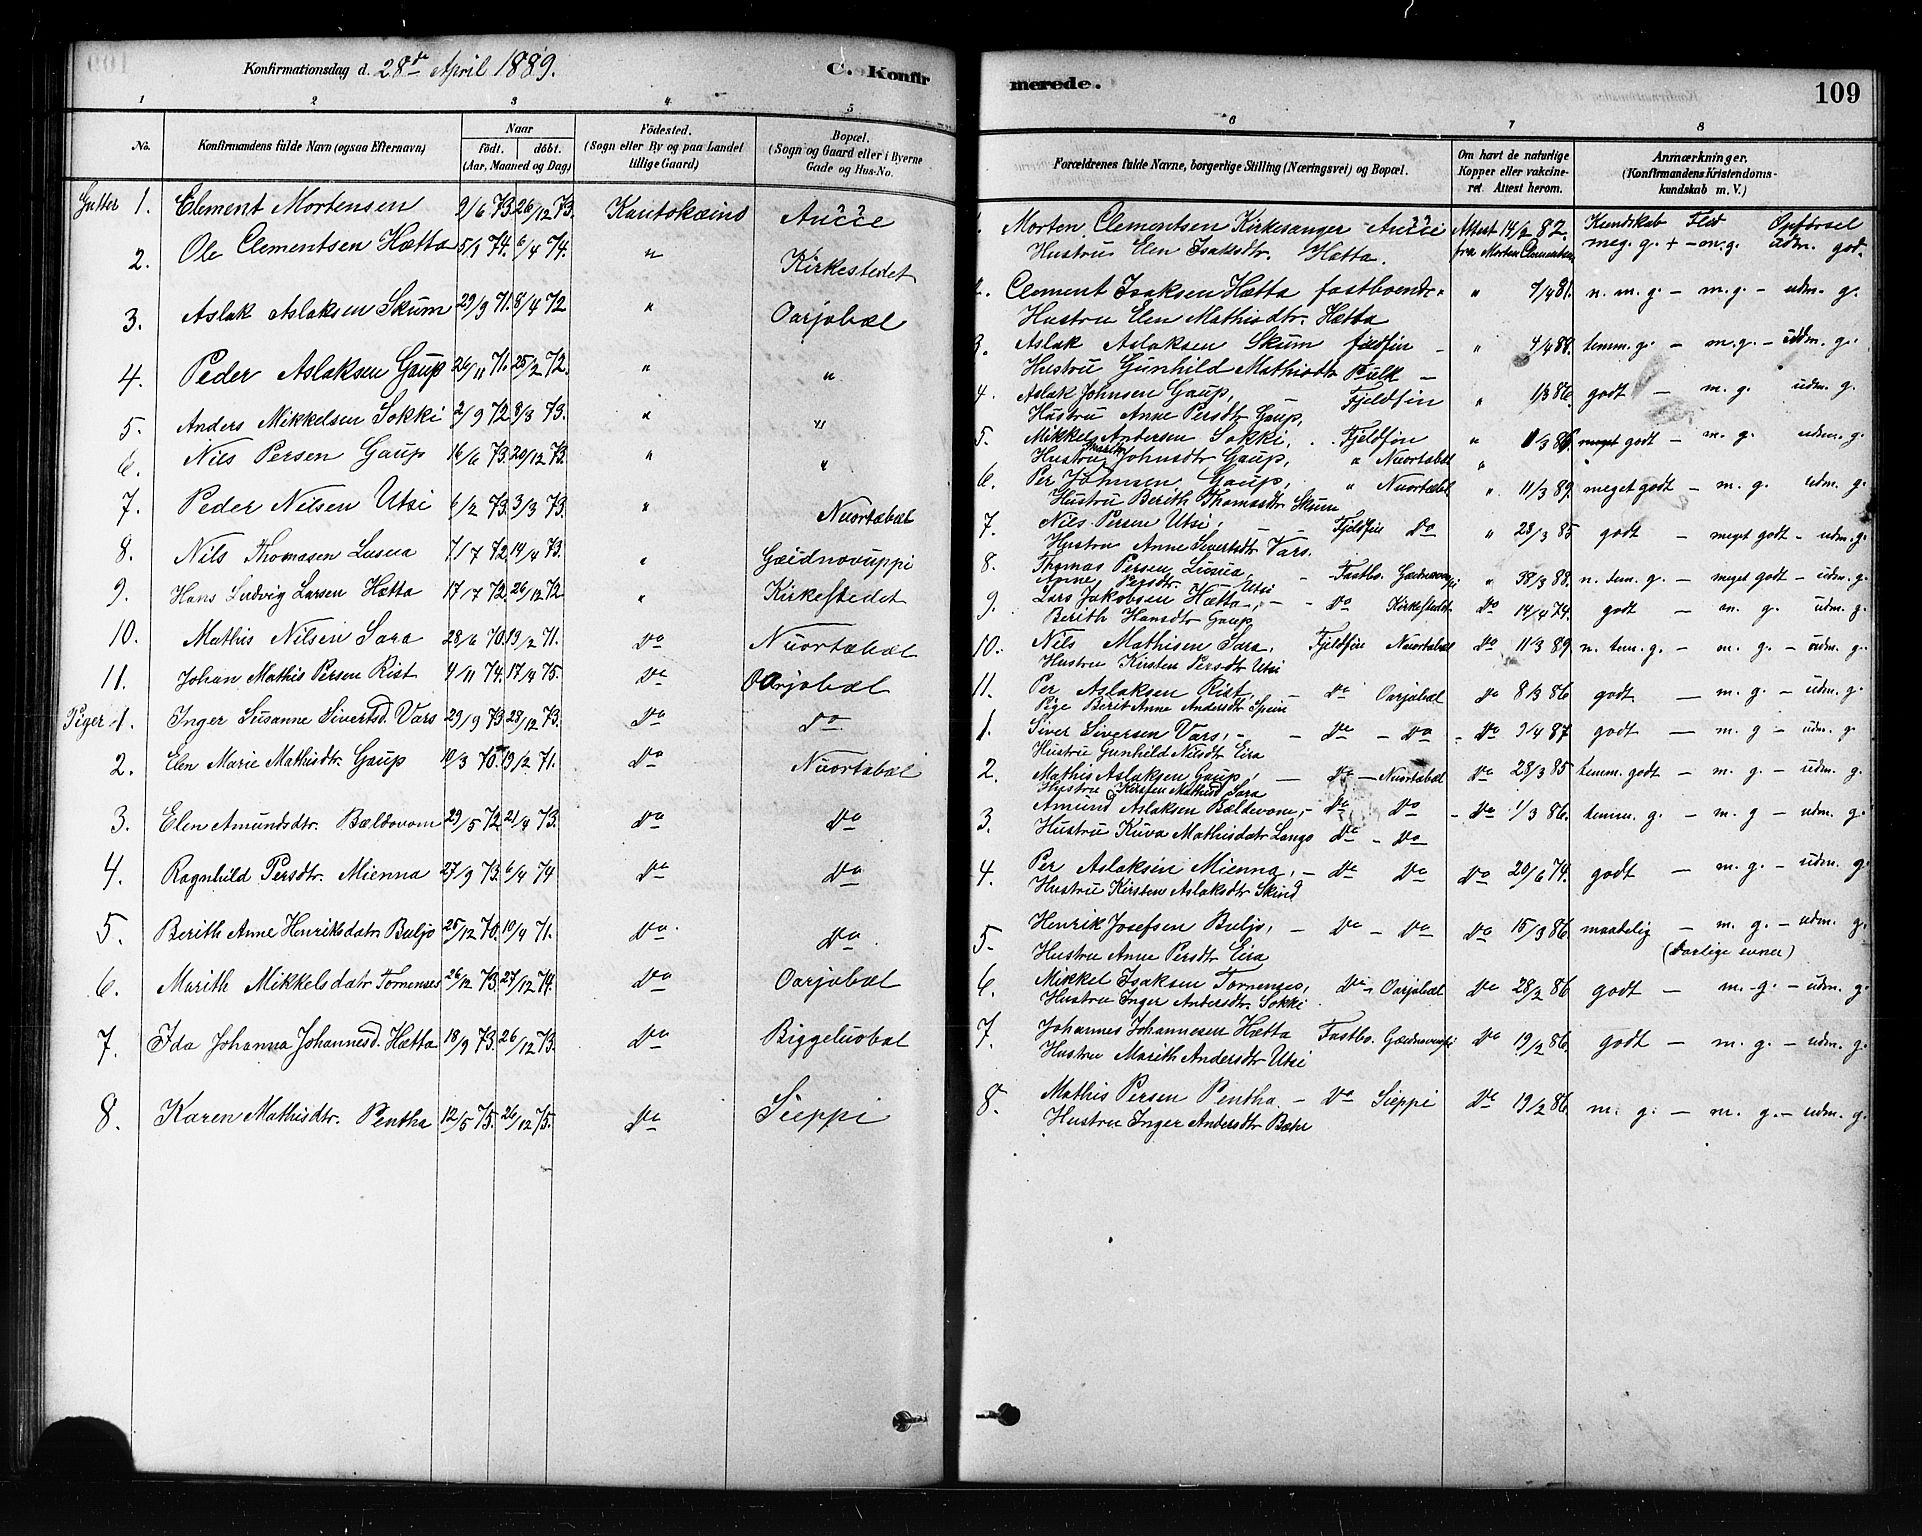 Konfirmationsdag d. 28de April 1889.
C. Konfir
1 2 3 4 5
No.
Konfirmandens fulde Navn (ogsaa Efternavn)
Naar
födt. döbt.
(Aar, Maaned og Dag)
Födested.
(Sogn eller By og paa Landet tillige Gaard)
Bopæl.
(Sogn og Gaard eller i Byerne Gade og Hus-No.
Gutter 1. Clement Mortensen 9/6 73. 26/12 73. Kautokæino Aučče
2. Ole Clementsen Hætta 5/1 74. 6/4 74. " Kirkestedet
3. Aslak Aslaksen Skum 29/9 71. 8/4 72 " Oarjobæl
4. Peder Aslaksen Gaup 26/11 71. 25/2 72. " "
5. Anders Mikkelsen Sokki 2/9 72. 8/3 73. " "
6. Nils Persen Gaup 16/6 73. 20/12 73. " "
7. Peder Nilsen Utsi 6/2 73. 3/3 73. " Nuortabæl
8. Nils Thomasen Lusua 7/7 72. 14/4 73. " Gæidnovuppi
9. Hans Ludvig Larsen Hætta 17/7 72. 26/12 72 " Kirkestedet
10. Mathis Nilsen Sara 28/6 70. 19/2 71. Do Nuortabæl
11. Johan Mathis Persen Rist 4/11 74. 17/4 75. Do Oarjobæl
Piger 1. Inger Susanne Sivertsd. Vars 29/9 73 28/12 73. Do Do
2. Elen Marie Mathisdtr. Gaup 10/3 70. 19/2 71. Do Nuortabæl
3. Elen Amundsdtr. Bældovom 29/5 72. 21/4 73. Do Do
4. Ragnhild Persdtr. Mienna 27/9 73. 6/4 74 Do Do
5. Berith Anne Henriksdatr Buljo 25/12 70. 10/4 71. Do. Do.
6. Marith Mikkelsdatr Tornenses 26/12 73. 27/12 74. Do Oarjobæl
7. Ida Johanna Johannesd. Hætta 18/9 73. 26/12 73. Do Biggeluobal
8. Karen Mathisdtr. Pentha 12/5 75. 26/12 75. Do Sieppi
merede. 109
6 7 8
Forældrenes fulde Navne, borgerlige Stilling (Næringsvei) og Bopæl.
Om havt de naturlige Kopper eller vakcineret. Attest herom.
Anmærkninger.
(Konfirmandens Kristendomskundskab m. V.)
1. Morten Clementsen Kirkesanger Aučče Attest 14/2 82. Kundskab Flid Opförsel
Hustru Elen Isaksdtr. Hætta. fra Morten Clementsen. meg. g. + - m. g. udm. god.
2. Clement Isaksen Hætta fastboende " " 4/4 81. n. m. g. - m. g. - udm. g.
Hustru Elen Mathisdtr. Hætta
3. Aslak Aslaksen Skum fieldfin - " 4/4 88. temm. g. - m. g. - udm. g.
Hustru Gunhild Mathisdtr Pulk -
4. Aslak Johnsen Gaup, Fjeldfin " 1/3 86. godt - m. g. udm. g.
Hustru Anne Persdtr Gaup,
5. Mikkel Andersen Sokki, Fjeldfin " 11/3 86. meget godt - m. g. udm. g.
Hustru Johnsdtr Gaup, " Nuortabæl "
6. Per Johnsen Gaup, " Nuortabæl " 11/3 89. meget godt - m. g. udm. g.
Hustru Berith Thomasdtr Skum
7. Nils Persen Utsi, - - Fjeldfin Do " 28/3 85 godt - meget godt - udm. g.
Hustru Anne Sivertsdtr Vars.
8. Thomas Persen Lusua, - Fastbo. Gæidnovuppi " 38/3 88. n. tem. g. - meget godt - udm. g.
Anne Persdtr. Utsi
9. Lars Jakobsen Hætta, - - Do Kirkestedet Do 14/4 74. godt - m. g. udm. g.
Berith Hansdtr Gaup
10. Nils Mathisen Sara, Fjeldfin Nuortabæl Do 11/3 89. n. tem. g. - m. g. - udm. g.
Hustru Kirsten Persdtr Utsi
11. Per Aslaksen Rist, - Do Oarjobæl Do 8/3 86 godt. - m. g. - udm. g.
Pige Berit Anne Andersdtr Spein
1. Siver Siversen Vars, - - Do - Do - Do 9/4 87 godt - m. g - udm. g.
Hustru Gunhild Nilsdtr Eira
2. Mathis Aslaksen Gaup, - Do - Nuortabæl Do 28/3 85 temm. godt - m. g. - udm. g.
Hustru Kirsten Mathisd Sara
3. Amund Aslaksen Bældovom, - Do Do - Do 1/3 86. temm. g. - m. g - udm. g.
Hustru Kuva Mathisdatr Lango Do - Do
4. Per Aslaksen Mienna, - Do Do Do 20/6 74. godt - m. g. - udm. g.
Hustru Kirsten Aslaksdtr Skind
5. Henrik Josefsen Buljo, - Do - Do Do 15/3 86 maadelig - m. g. - udm. g.
Hustru Anne Persdtr Eira (Daarlige evner)
6. Mikkel Isaksen Tornenses, Do - Oarjobæl Do 28/2 86 godt - m. g. - udm. g.
Hustru Inger Andersdtr. Sokki
7. Johannes Johannesen Hætta Fastbo. Gæidnovuppi Do 19/2 86. godt - m. g. - udm. g.
Hustru Marith Andersdtr Utsi
8. Mathis Persen Pentha - Do Sieppi Do 19/2 86 m. g. - m. g. - udm. g.
Hustru Inger Andersdtr Bæhr